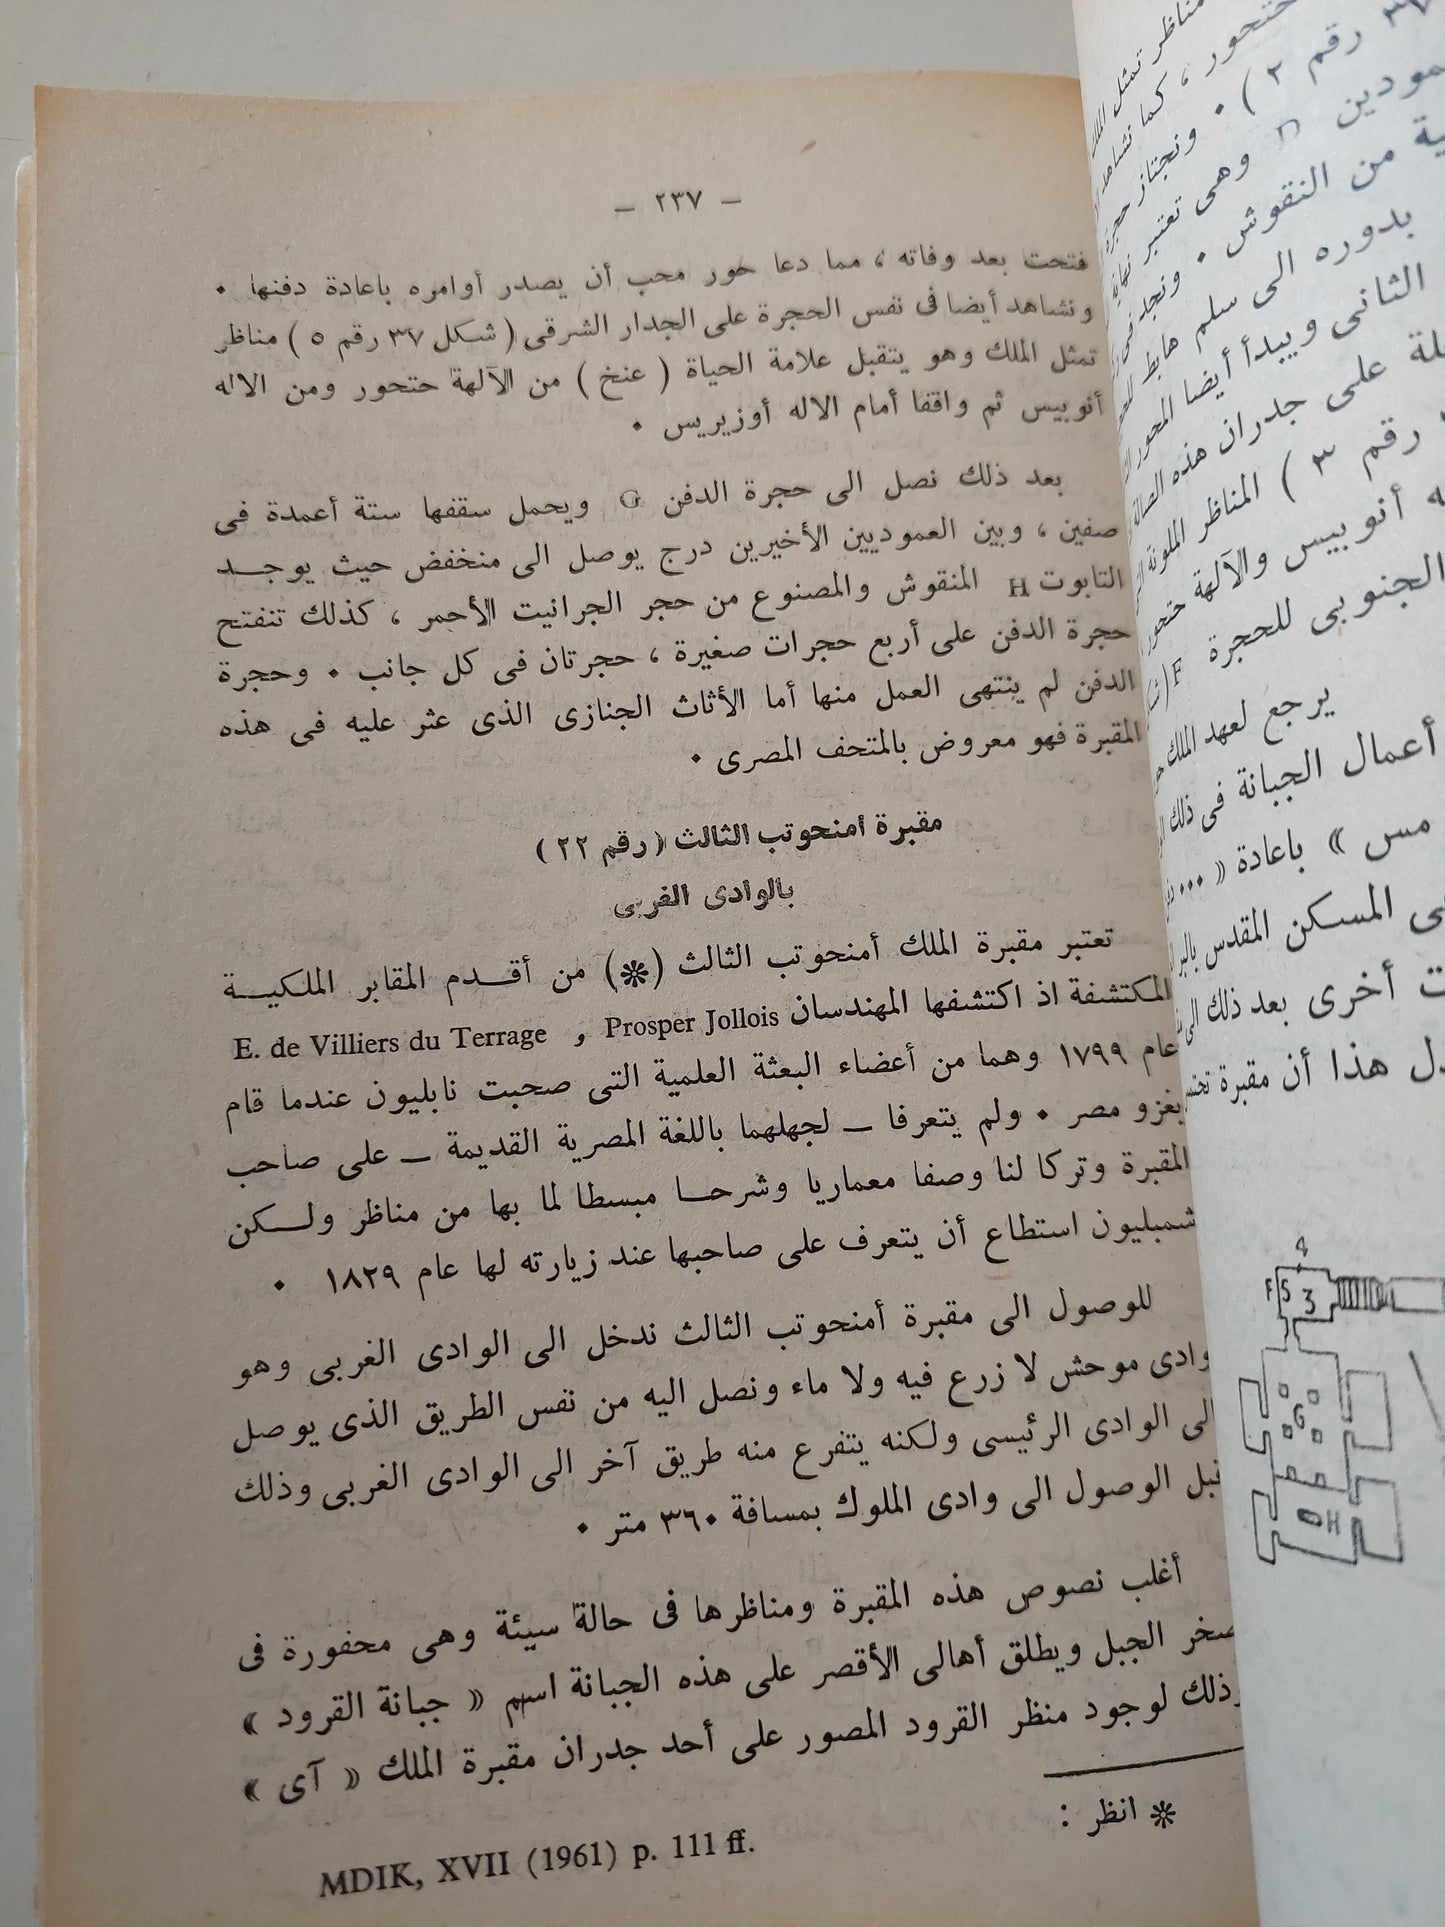 — ٢٣٧ —
فتحت بعد وفاته ، مما دعا حور محب أن يصدر أوامره باعادة دفنها ٠
ونشاهد أيضا فى نفس الحجرة على الجدار الشرقى ( شكل ٣٧ رقم ٥ ) مناظر
تمثل الملك وهو يتقبل علامة الحياة ( عنخ ) من الآلهة حتحور ومن الاله
أنوبيس ثم واقفا أمام الاله أوزيريس ٠
بعد ذلك نصل الى حجرة الدفن G ويحمل سقفها ستة أعمدة فى
صفين ، وبين العموديين الأخيرين درج يوصل الى منخفض حيث يوجد
التابوت H المنقوش والمصنوع من حجر الجرانيت الأحمر ، كذلك تنفتح
حجرة الدفن على أربع حجرات صغيرة ، حجرتان فى كل جانب ٠ وحجرة
الدفن لم ينتهى العمل منها أما الأثاث الجنازى الذى عثر عليه فى هذه
المقبرة فهو معروض بالمتحف المصرى ٠
مقبرة أمنحوتب الثالث ( رقم ٢٢ )
بالوادى الغربى
تعتبر مقبرة الملك أمنحوتب الثالث (*) من أقدم المقابر الملكية
المكتشفة اذ اكتشفها المهندسان Prosper Jollois و E. de Villiers du Terrage
عام ١٧٩٩ وهما من أعضاء البعثة العلمية التى صحبت نابليون عندما قام
بغزو مصر ٠ ولم يتعرفا — لجهلهما باللغة المصرية القديمة — على صاحب
المقبرة وتركا لنا وصفا معماريا وشرحا مبسطا لما بها من مناظر ولكن
شمبليون استطاع أن يتعرف على صاحبها عند زيارته لها عام ١٨٢٩ ٠
للوصول الى مقبرة أمنحوتب الثالث ندخل الى الوادى الغربى وهو
وادى موحش لا زرع فيه ولا ماء ونصل اليه من نفس الطريق الذى يوصل
الى الوادى الرئيسى ولكنه يتفرع منه طريق آخر الى الوادى الغربى وذلك
قبل الوصول الى وادى الملوك بمسافة ٣٦٠ متر ٠
أغلب نصوص هذه المقبرة ومناظرها فى حالة سيئة وهى محفورة فى
صخر الجبل ويطلق أهالى الأقصر على هذه الجبانة اسم « جبانة القرود »
وذلك لوجود منظر القرود المصور على أحد جدران مقبرة الملك « آى »
* انظر :
MDIK, XVII (1961) p. 111 ff.
مناظر تمثل الملك
حتحور ، كما نشاهد
٣٧ رقم ٢ ) ٠ ونجتاز حجرة
وهى تعتبر نهاية
من النقوش ٠ ونجد فى
بدوره الى سلم هابط
الثانى ويبدأ أيضا المحور
على جدران هذه الصالة
رقم ٣ ) المناظر الملونة
أنوبيس والآلهة حتحور
الجنوبى للحجرة F
يرجع لعهد الملك
أعمال الجبانة فى ذلك
مس » باعادة « ٠٠٠
المسكن المقدس
أخرى بعد ذلك الى
هذا أن مقبرة
4
F 5 3
G
H